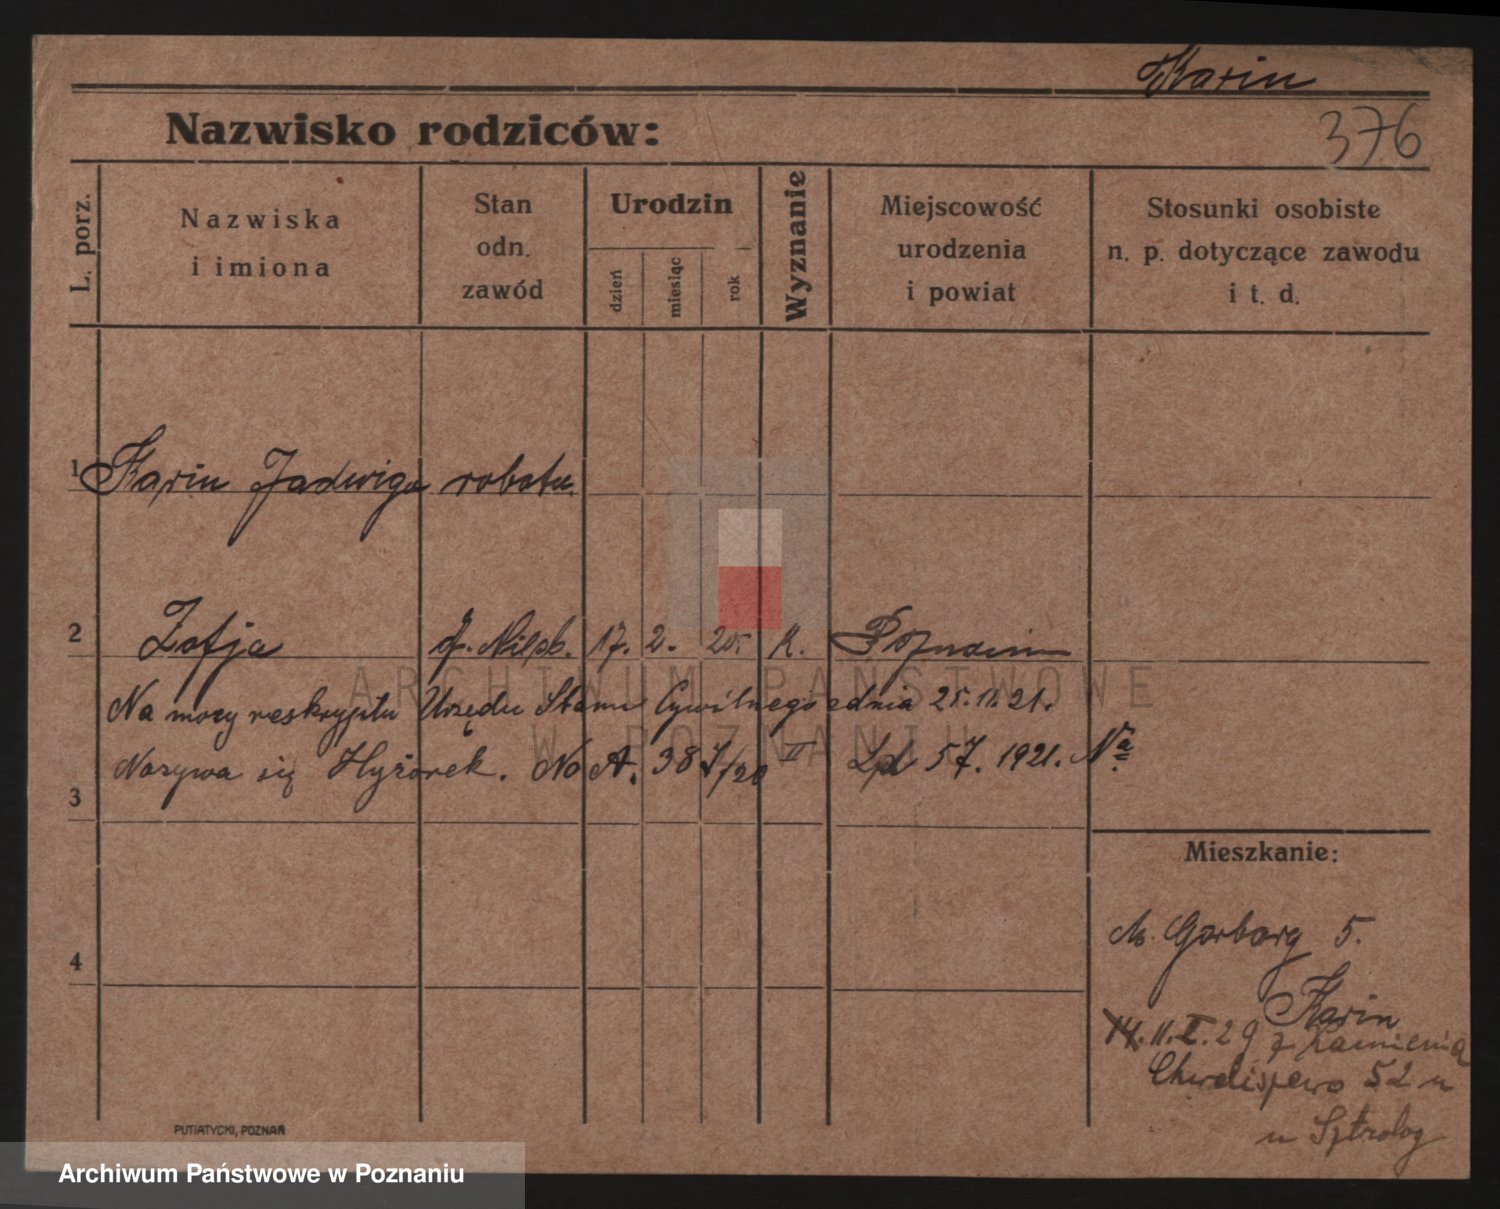 Karin
Nazwisko rodziców:
376
L. porz.
Nazwiska
i imiona
Stan
odn.
zawód
Urodzin
dzień
miesiąc
rok
Wyznanie
Miejscowość
urodzenia
i powiat
Stosunki osobiste
n. p. dotyczące zawodu
i t. d.
1 Karin Jadwiga robotn.
2 Zofja 17. 2. 20. K. Poznań
ARCHIWUM PAŃSTWOWE
W POZNANIU
Na mocy reskryptu Urzędu Stanu Cywilnego z dnia 25.11.21.
Nazywa się Hyżorek. No A. 387/20 II Ld 57. 1921. Na
3
Mieszkanie:
4
M. Garbary 5.
Karin
11.X.29 z Kamienia
Chwaliszewo 52 u
u
PUTIATYCKI, POZNAŃ
Archiwum Państwowe w Poznaniu